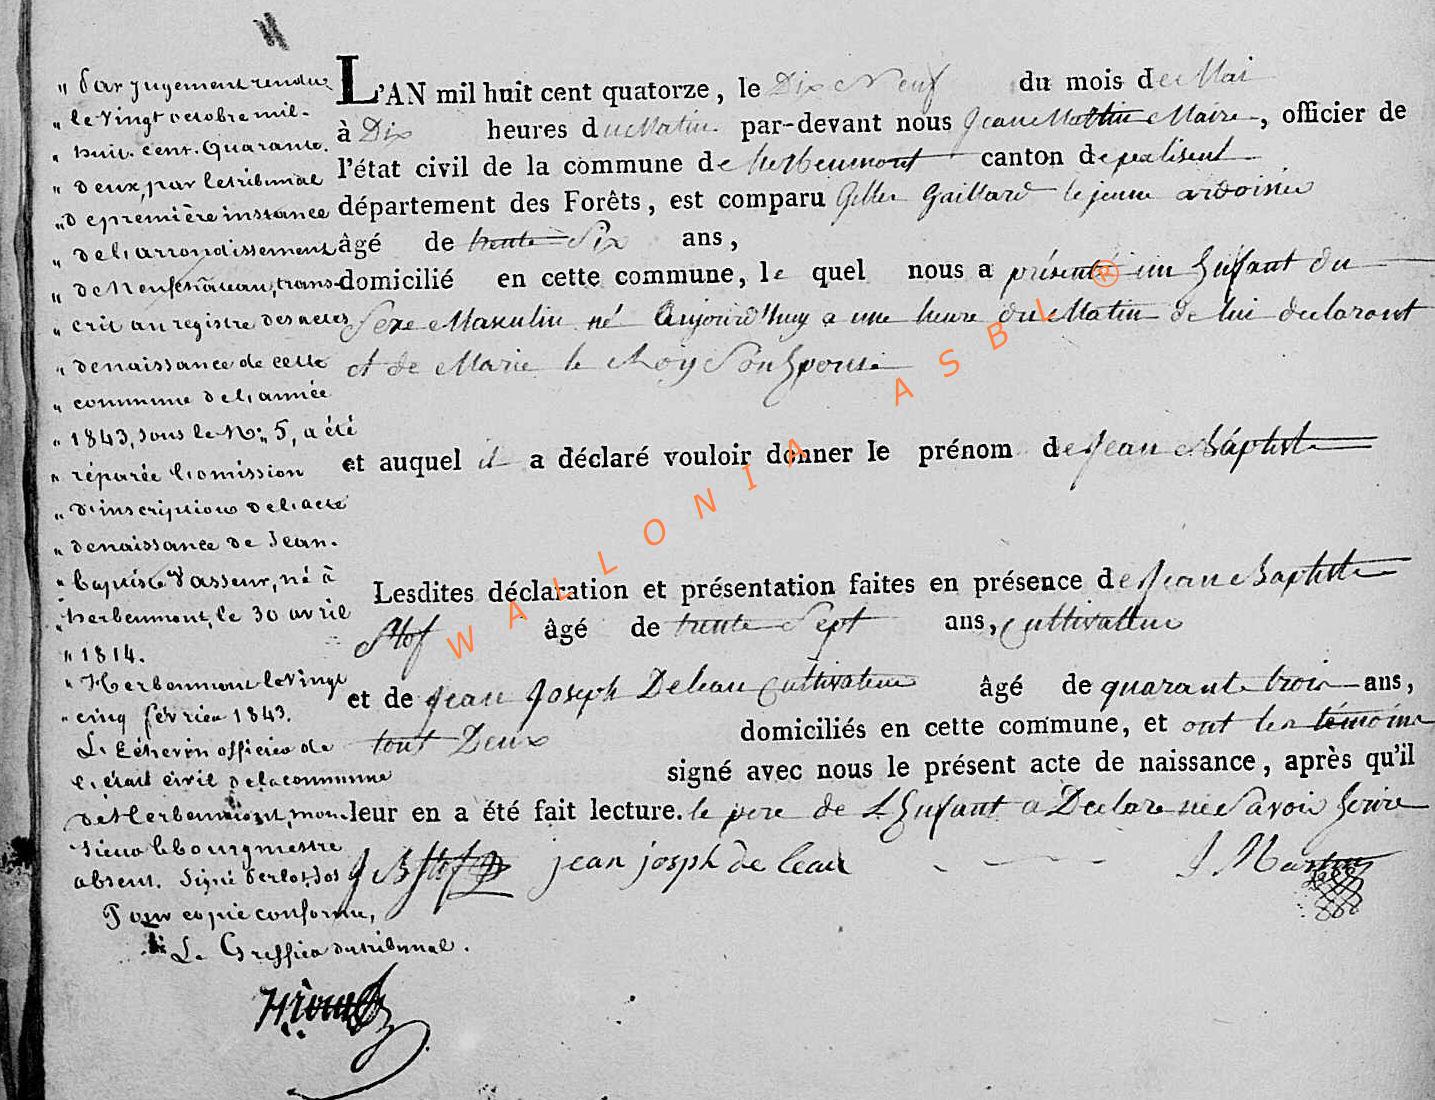 " Par jugement rendu
" le vingt octobre mil-
" huit. cent. Quarante.
" deux, par le tribunal
" de première instance
" de l'arrondissement
" de Neufchâteau, trans-
" crit au registre des actes
" de naissance de cette
" commune de l'année
" 1843, sous le No: 5, a été
" réparée l'omission
" d'inscription de l'acte
" de naissance de Jean-
" baptiste Vasseur, né à
" herbeumont, le 30 avril
" 1814.
" Herbeumont le vingt
" cinq février 1843.
L'Echevin officier de
l'état civil de la commune
de Herbeumont, mon-
sieur le bourgmestre
absent. Signé
Pour copie conforme,
Le Greffier du tribunal.
L'AN mil huit cent quatorze, le Dix Neuf du mois de Mai
à Dix heures du Matin. par-devant nous Jean Martin Maire, officier de
l'état civil de la commune de herbeumont canton de paliseul
département des Forêts, est comparu Gilles Gaillard le jeune ardoisier
âgé de trente Six ans,
domicilié en cette commune, le quel nous a présenté un Enfant du
Sexe Masculin né Aujourd'huy a une heure du Matin de lui declarant
et de Marie le Roy Son Epouse
et auquel il a déclaré vouloir donner le prénom de Jean Baptiste
Lesdites déclaration et présentation faites en présence de Jean Baptiste
Stof âgé de trente Sept ans, cultivateur
et de Jean Joseph Deleau Cultivateur âgé de quarante trois ans,
tout Deux domiciliés en cette commune, et ont les témoins
signé avec nous le présent acte de naissance, après qu'il
leur en a été fait lecture. le pere de L'Enfant a Declare ne Savoir Ecrire
J B Stof jean josph de leau J Martin
WALLONIA ASBL ®